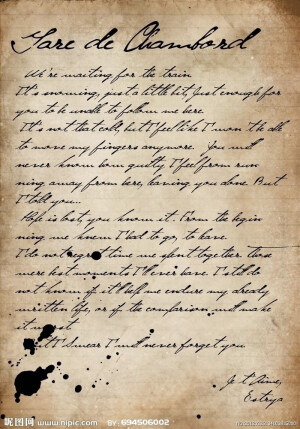 Gare de Chambord
We're waiting for the train
It's snowing, just a little bit just enough for
you to be unable to follow me here.
It's not that cold, but I feel like I won't be able
to move my fingers anymore. You will
never know how guilty I feel from run
ning away from here, leaving you alone. But
I told you...
is lost, you know it. From the begin
ning we knew I had to go, to leave.
I do not regret time we spent together. Those
were best moments I'll ever have. I still do
not know if it'll help me endure my already
written life, or if the comparison will make
it worst
I swear I will never forget you
Je t'Aime,
昵图网 www.nipic.com BY 694506002